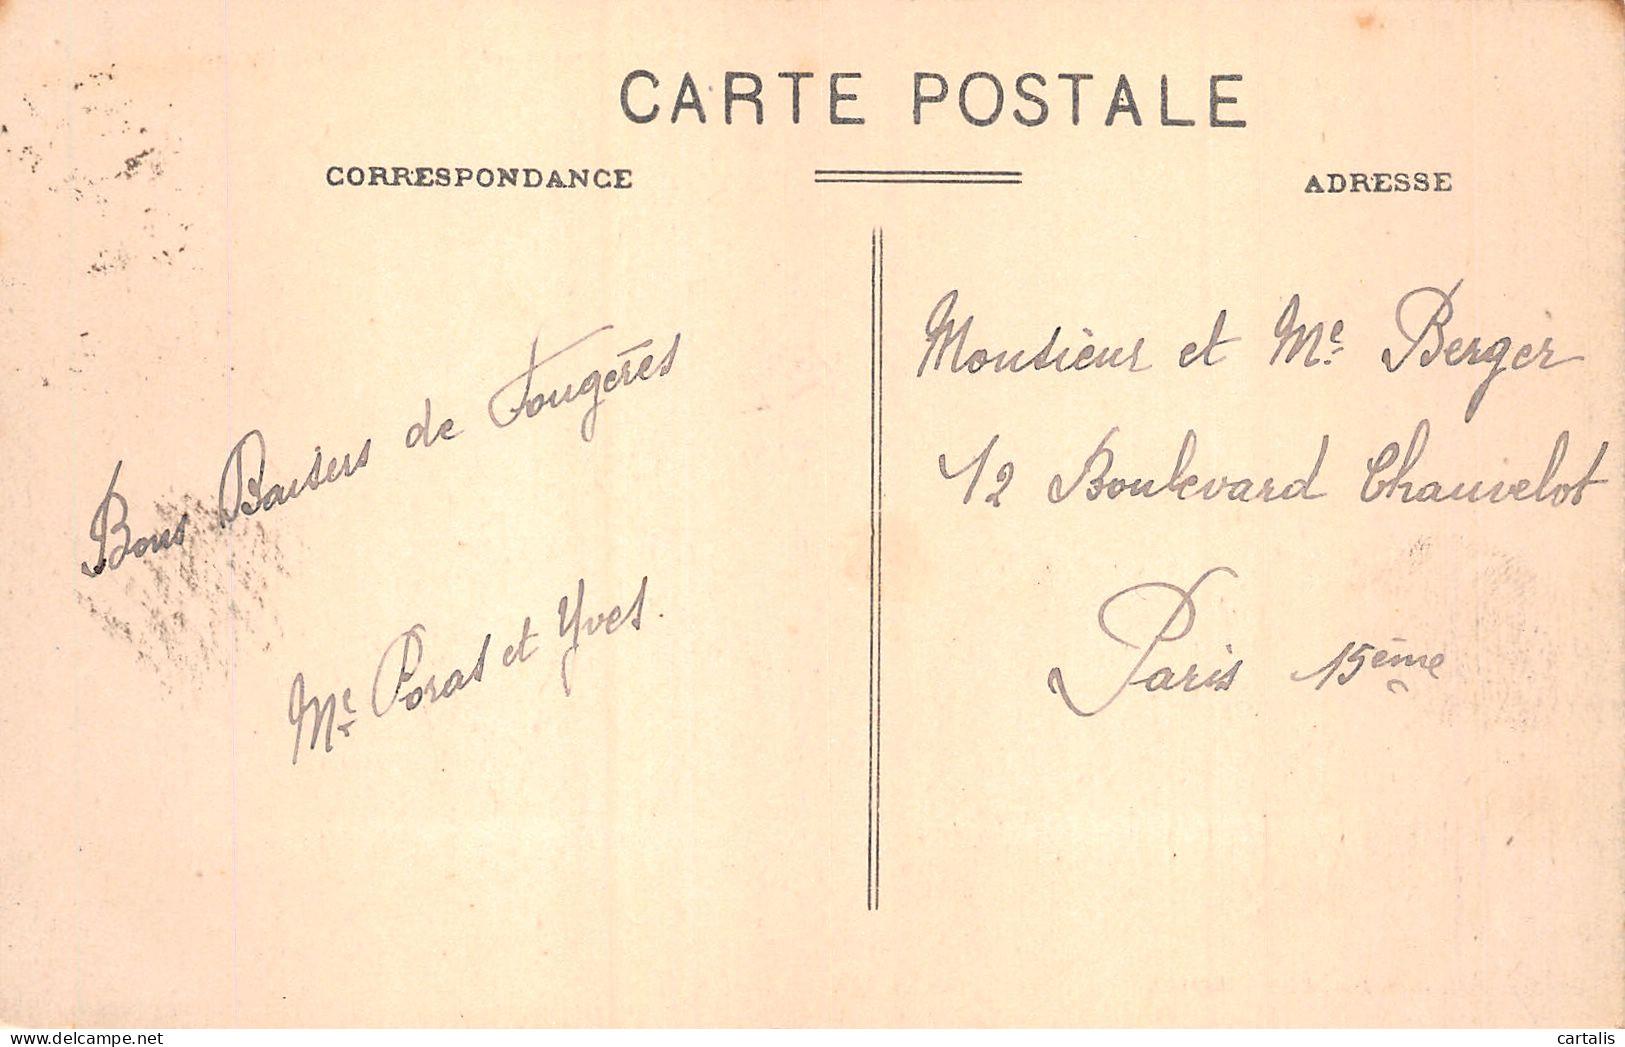 CARTE POSTALE
CORRESPONDANCE
ADRESSE
Bons Baisers de Fougères
Me Poras et Yves.
Monsieur et Me Berger
12 Boulevard Chauvelot
Paris 15ème
cartalis